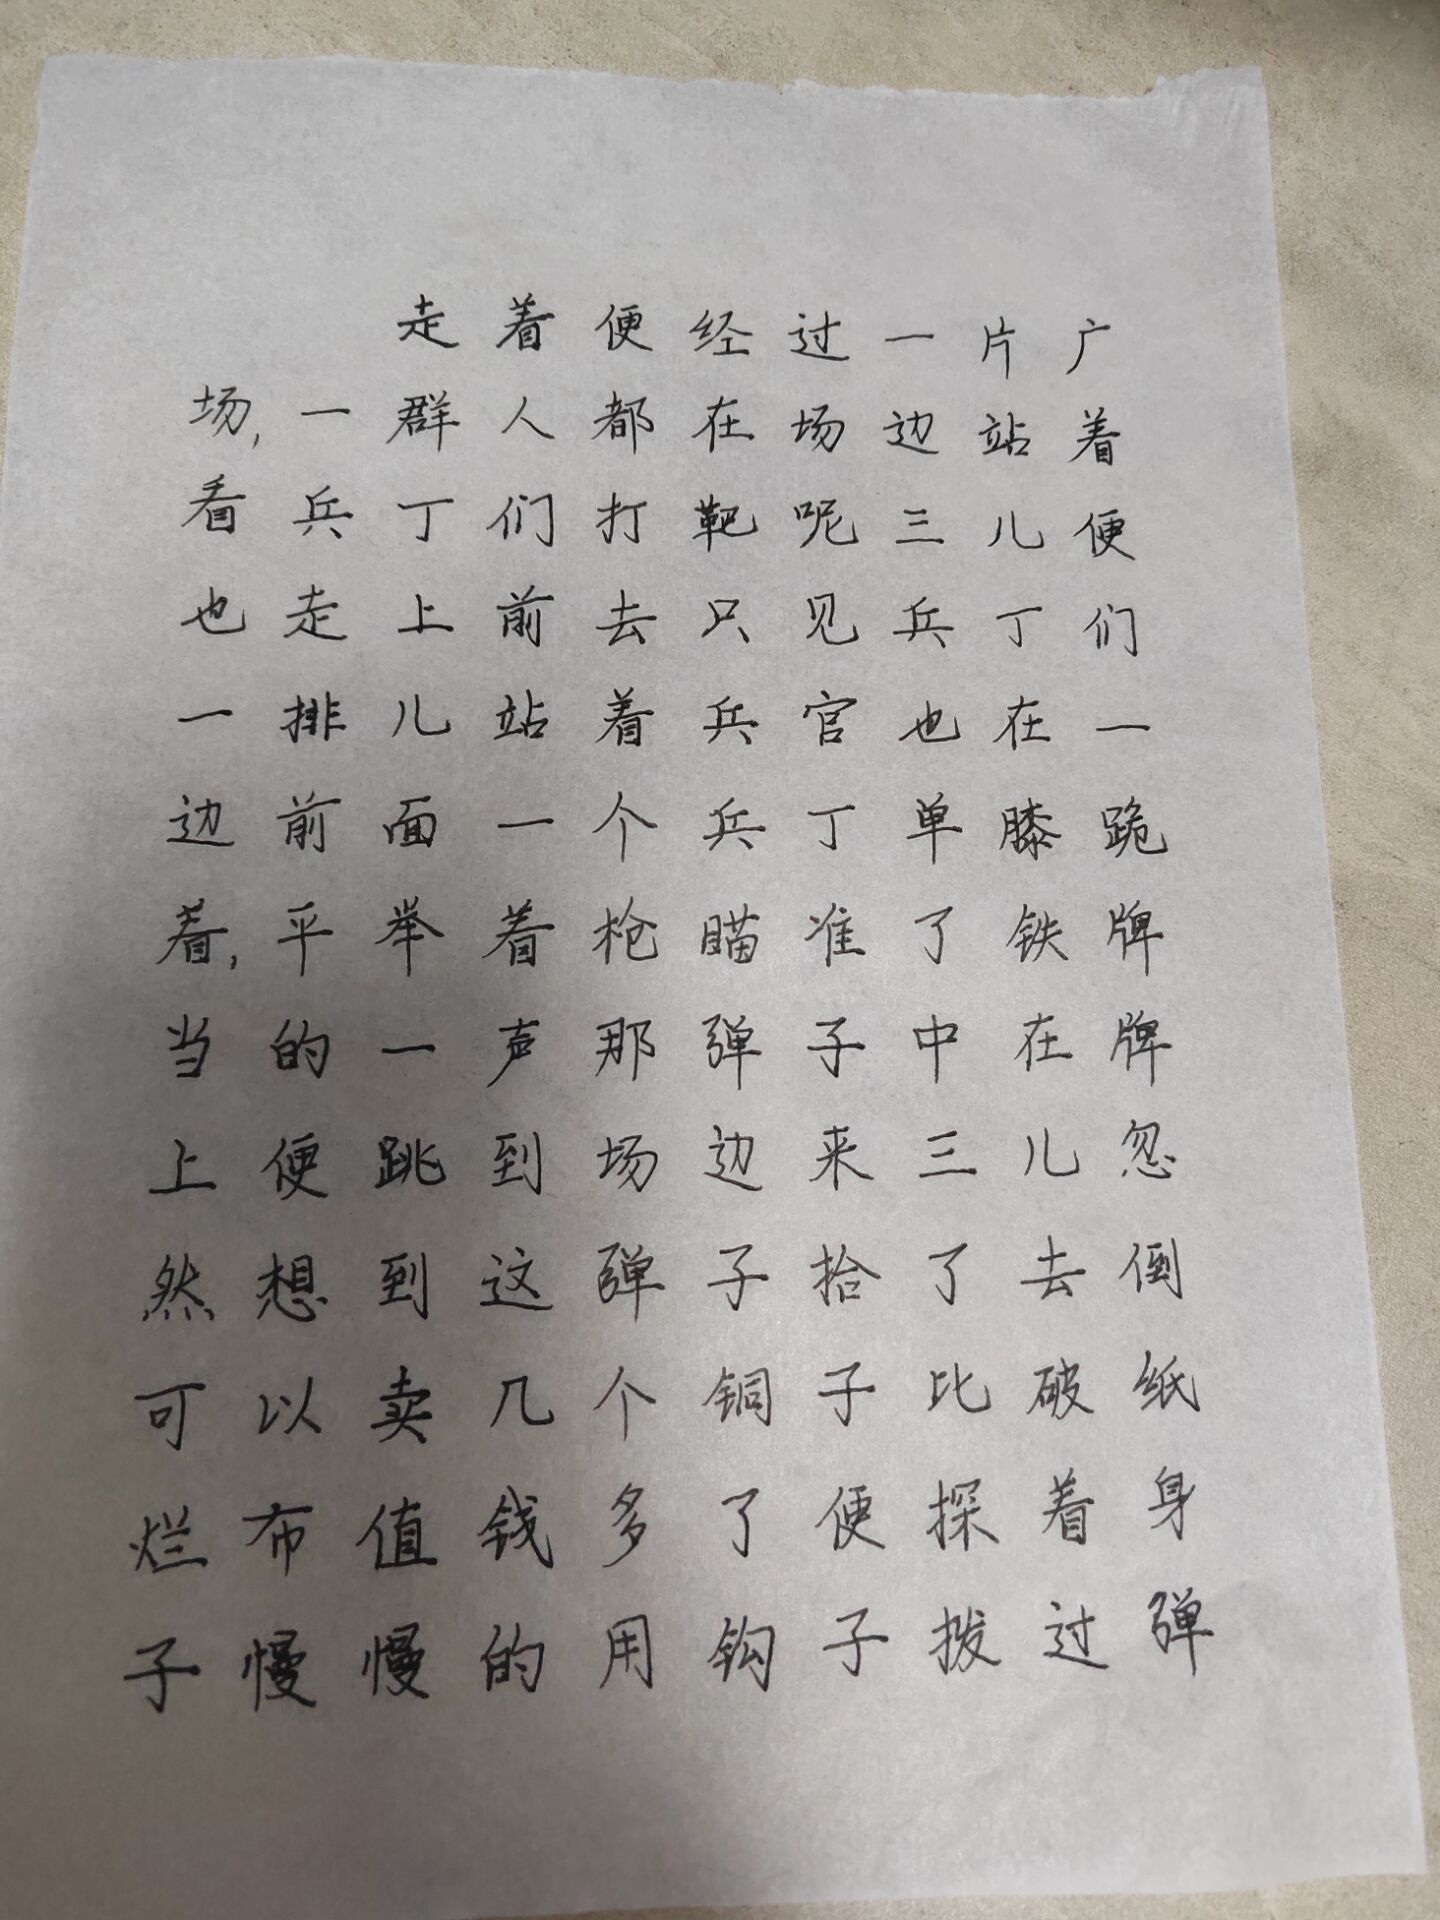 走着便经过一片广
场,一群人都在场边站着
看兵丁们打靶呢三儿便
也走上前去只见兵丁们
一排儿站着兵官也在一
边前面一个兵丁单膝跪
着,平举着枪瞄准了铁牌
当的一声那弹子中在牌
上便跳到场边来三儿忽
然想到这弹子拾了去倒
可以卖几个铜子比破纸
烂布值钱多了便探着身
子慢慢的用钩子拨过弹